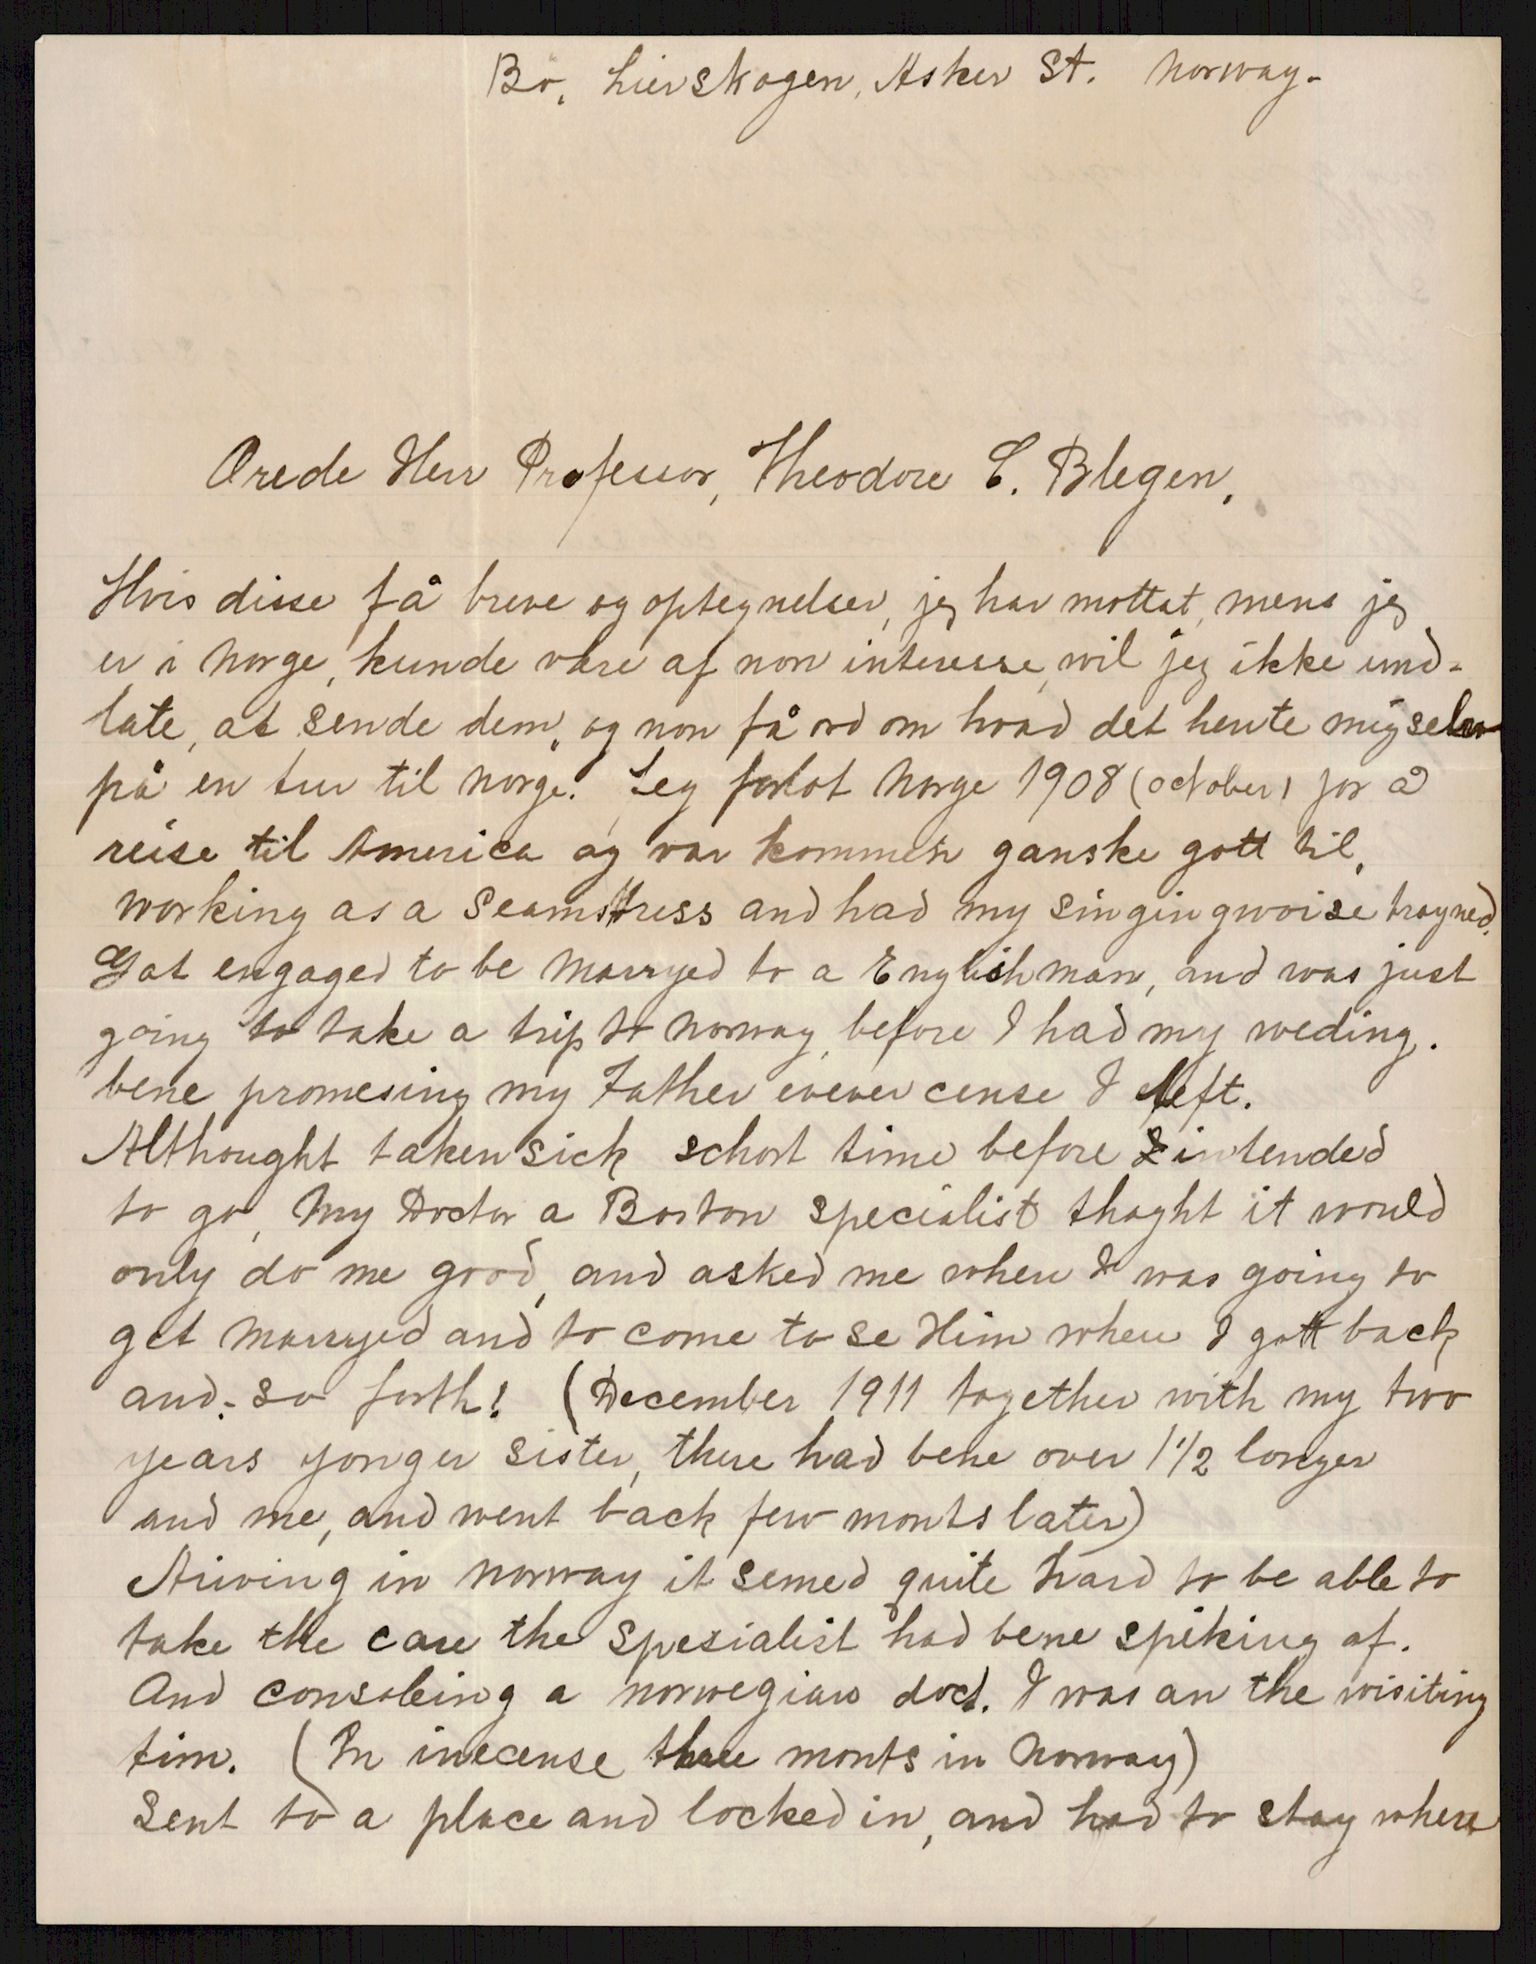 Bö, Lierskogen, Asker St. Norway-
Ærede Herr Professor, Theodore C. Blegen,
Hvis disse få breve og optegnelser, jeg har mottat, mens jeg
er i Norge, kunde være af non interesse, vil jeg ikke und-
late, at sende dem, og non få ord om hvad det hente mig selv
på en tur til Norge. Jeg forlot Norge 1908 (october) for å
reise til America og var kommen ganske gott til,
working as a Seamstress and had my singing woise trayned.
Gat engaged to be Marryed to a Englishman, and was just
going to take a trip to Norway, before I had my weding.
bene promesing my Father evever cense I left.
Althought taken sick schort time before I intended
to go, My Doctor a Boston specialist thoght it would
only do me good, and asked me when I was going to
get Marryed and to come to se Him when I gott back
and.- so forth! (December 1911 together with my two
years yonger sister, there had bene over 1 1/2 longer
and me, and went back few monts later)
Ariving in Norway it semed quite hard to be able to
take the care the spesialist had bene spiking of.
And consoleing a norwegian doct. I was an the wisiting
tim. (In inecense three monts in Norway)
Sent to a place and locked in, and had to stay where